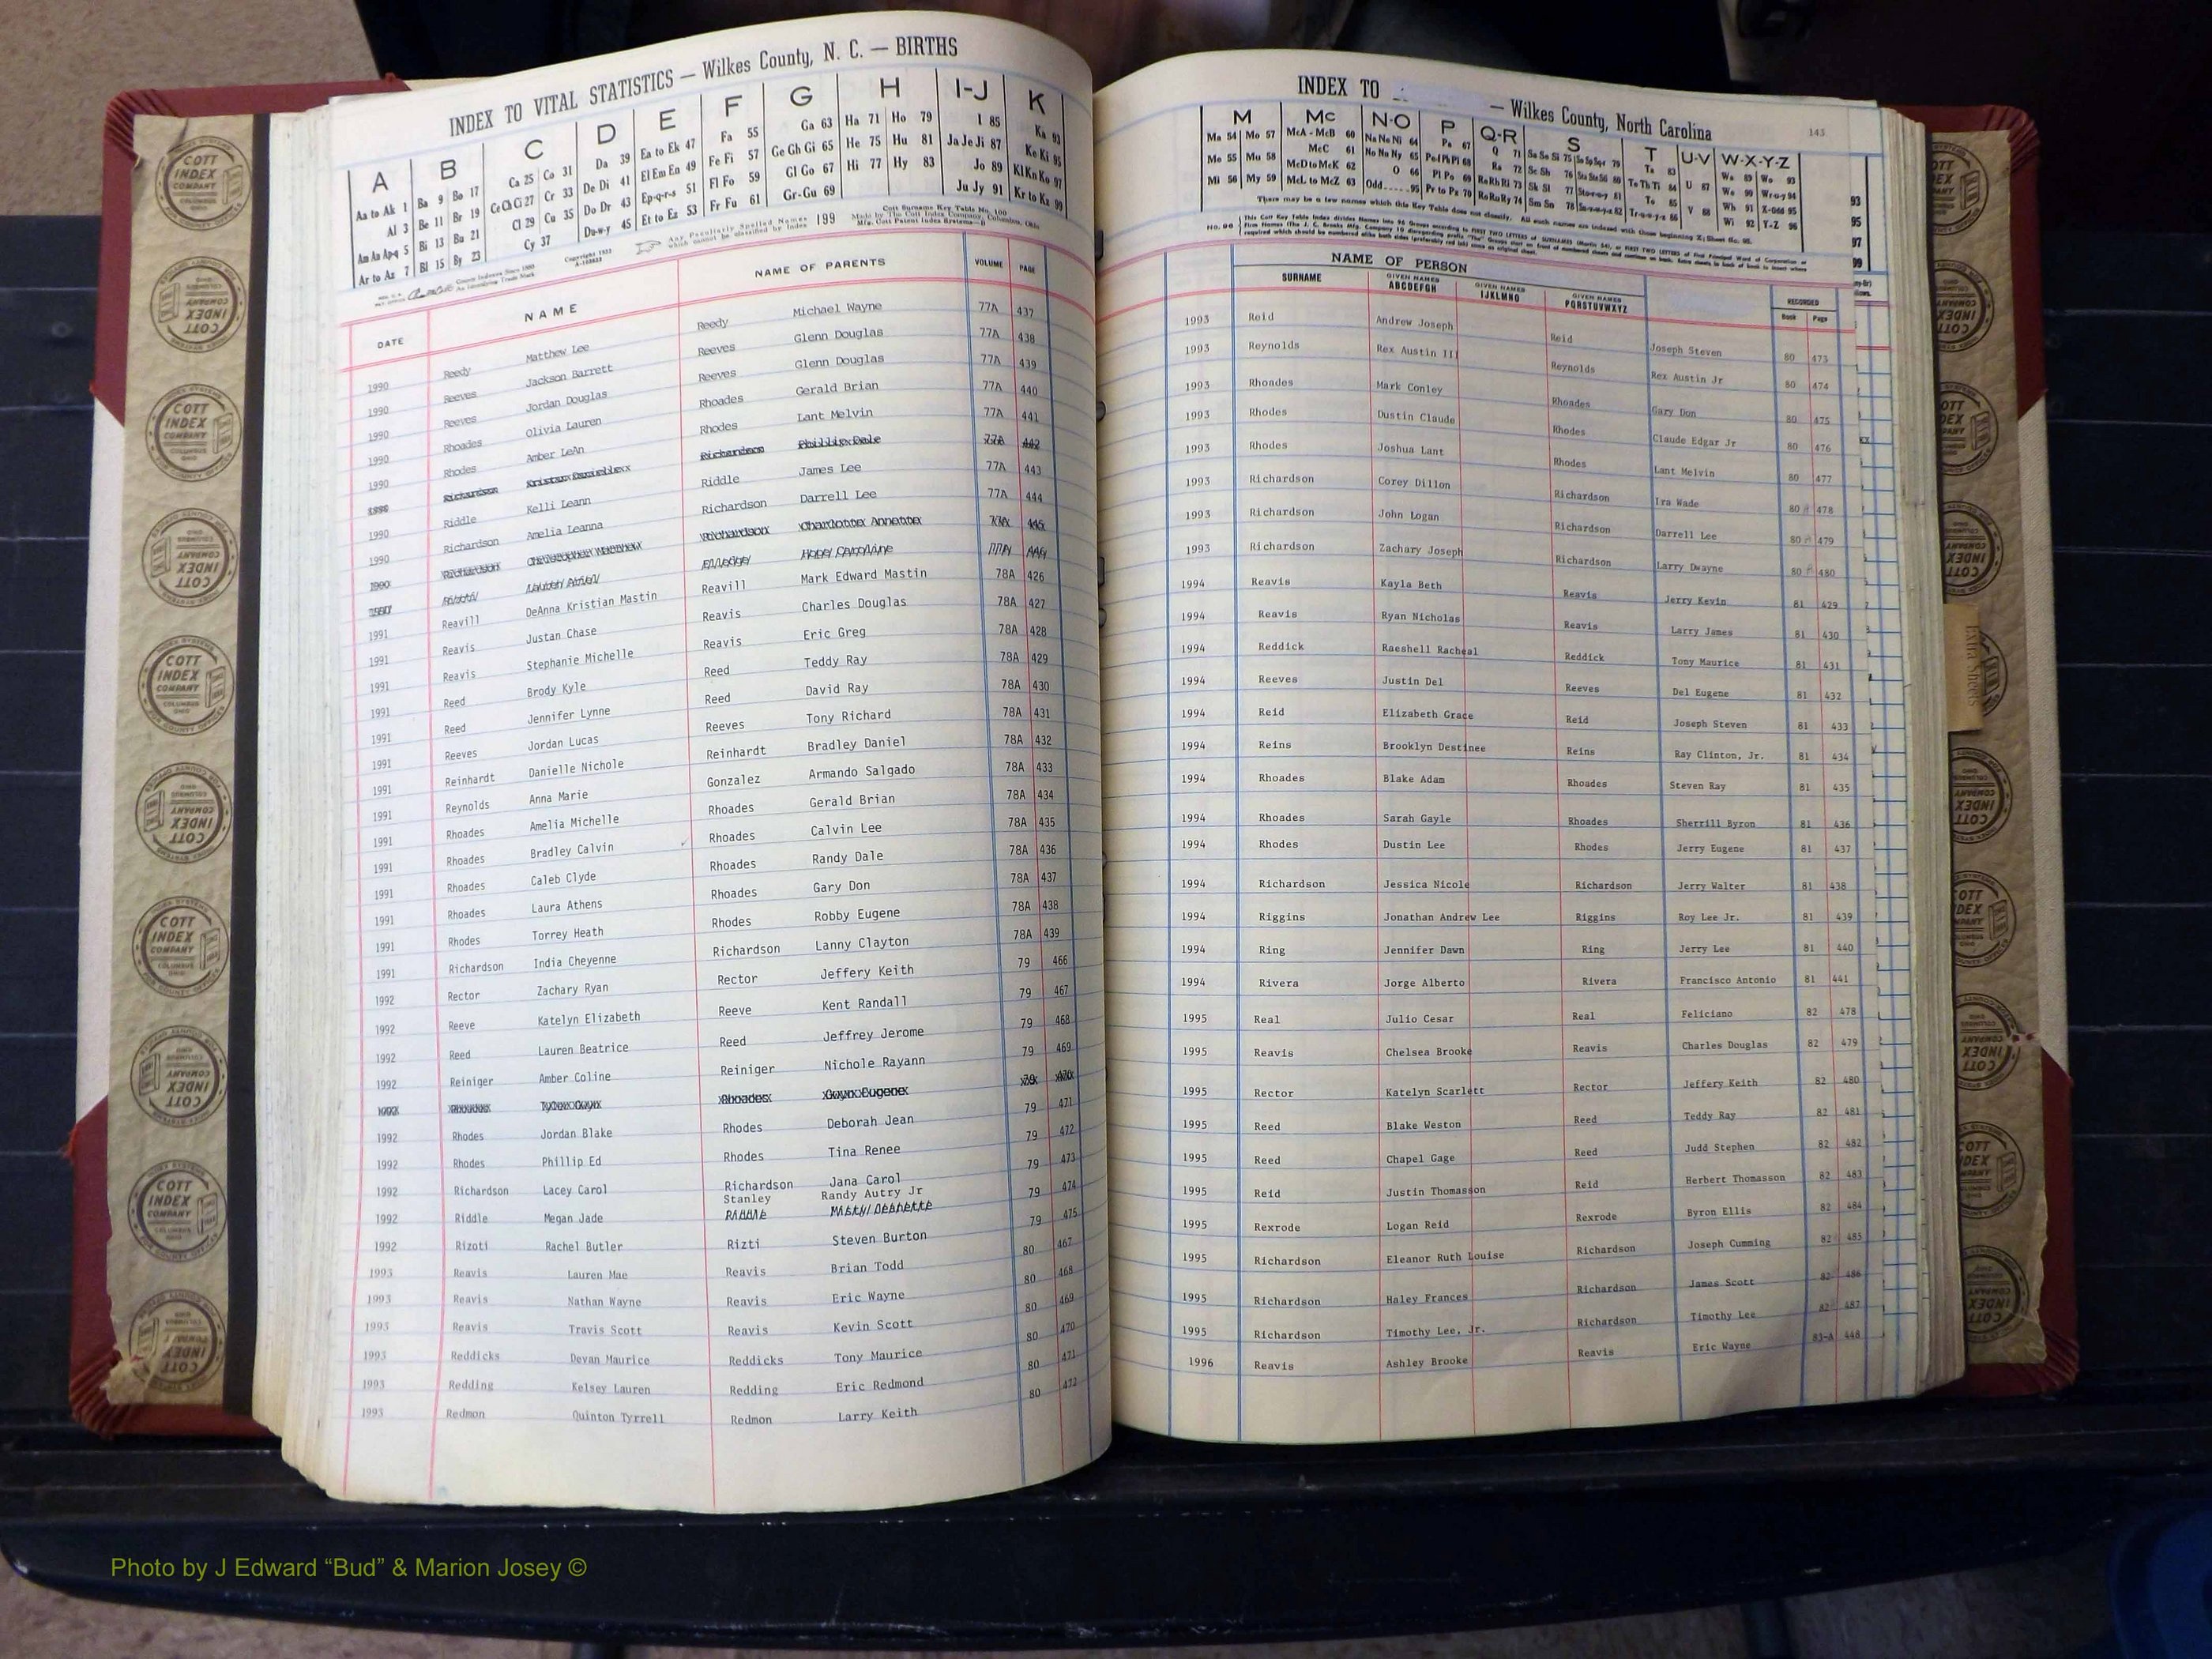 INDEX TO VITAL STATISTICS — Wilkes County, N. C. — BIRTHS
A B C D E F G H I-J K
Aa to Ak 1 Ba 9 Bo 17 Ca 25 Co 31 Da 39 Ea to Ek 47 Fa 55 Ga 63 Ha 71 Ho 79 I 85 Ka 93
Al 3 Be 11 Br 19 Ce Ch Ci 27 Cr 33 De Di 41 El Em En 49 Fe Fi 57 Ge Gh Gi 65 He 75 Hu 81 Ja Je Ji 87 Ke Ki 95
Am An Ap-q 5 Bi 13 Bu 21 Cl 29 Cu 35 Do Dr 43 Ep-q-r-s 51 Fl Fo 59 Gl Go 67 Hi 77 Hy 83 Jo 89 Kl Kn Ko 97
Ar to Az 7 Bl 15 By 23 Cy 37 Du-w-y 45 Et to Ez 53 Fr Fu 61 Gr-Gu 69 Ju Jy 91 Kr to Kz 99
Any Peculiarly Spelled Names which cannot be classified by Index 199
Cott Surname Key Table No. 100
Made by The Cott Index Company, Columbus, Ohio
DATE NAME NAME OF PARENTS VOLUME PAGE
1990 Reedy Matthew Lee Reedy Michael Wayne 77A 437
1990 Reeves Jackson Barrett Reeves Glenn Douglas 77A 438
1990 Reeves Jordan Douglas Reeves Glenn Douglas 77A 439
1990 Rhoades Olivia Lauren Rhoades Gerald Brian 77A 440
1990 Rhodes Amber LeAn Rhodes Lant Melvin 77A 441
Richardson Richardson Phillip Dale 77A 442
1990 Riddle Kelli Leann Riddle James Lee 77A 443
1990 Richardson Amelia Leanna Richardson Darrell Lee 77A 444
1990 Richardson Richardson 77A 445
1990
1991 Reavill DeAnna Kristian Mastin Reavill Mark Edward Mastin 78A 426
1991 Reavis Justan Chase Reavis Charles Douglas 78A 427
1991 Reavis Stephanie Michelle Reavis Eric Greg 78A 428
1991 Reed Brody Kyle Reed Teddy Ray 78A 429
1991 Reed Jennifer Lynne Reed David Ray 78A 430
1991 Reeves Jordan Lucas Reeves Tony Richard 78A 431
1991 Reinhardt Danielle Nichole Reinhardt Bradley Daniel 78A 432
1991 Reynolds Anna Marie Gonzalez Armando Salgado 78A 433
1991 Rhoades Amelia Michelle Rhoades Gerald Brian 78A 434
1991 Rhoades Bradley Calvin Rhoades Calvin Lee 78A 435
1991 Rhoades Caleb Clyde Rhoades Randy Dale 78A 436
1991 Rhoades Laura Athens Rhoades Gary Don 78A 437
1991 Rhodes Torrey Heath Rhodes Robby Eugene 78A 438
1991 Richardson India Cheyenne Richardson Lanny Clayton 78A 439
1992 Rector Zachary Ryan Rector Jeffery Keith 79 466
1992 Reeve Katelyn Elizabeth Reeve Kent Randall 79 467
1992 Reed Lauren Beatrice Reed Jeffrey Jerome 79 468
1992 Reiniger Amber Coline Reiniger Nichole Rayann 79 469
Rhoades 79 470
1992 Rhodes Jordan Blake Rhodes Deborah Jean 79 471
1992 Rhodes Phillip Ed Rhodes Tina Renee 79 472
1992 Richardson Lacey Carol Richardson Jana Carol 79 473
Stanley Randy Autry Jr
1992 Riddle Megan Jade Riddle 79 474
1992 Rizoti Rachel Butler Rizti Steven Burton 79 475
1993 Reavis Lauren Mae Reavis Brian Todd 80 467
1993 Reavis Nathan Wayne Reavis Eric Wayne 80 468
1993 Reavis Travis Scott Reavis Kevin Scott 80 469
1993 Reddicks Devan Maurice Reddicks Tony Maurice 80 470
1993 Redding Kelsey Lauren Redding Eric Redmond 80 471
1993 Redmon Quinton Tyrrell Redmon Larry Keith 80 472
INDEX TO — Wilkes County, North Carolina 143
M Mc N-O P Q-R S T U-V W-X-Y-Z
NAME OF PERSON
SURNAME GIVEN NAMES ABCDEFGH GIVEN NAMES IJKLMNO GIVEN NAMES PQRSTUVWXYZ RECORDED Book Page
1993 Reid Andrew Joseph Reid Joseph Steven 80 473
1993 Reynolds Rex Austin III Reynolds Rex Austin Jr 80 474
1993 Rhoades Mark Conley Rhoades Gary Don 80 475
1993 Rhodes Dustin Claude Rhodes Claude Edgar Jr 80 476
1993 Rhodes Joshua Lant Rhodes Lant Melvin 80 477
1993 Richardson Corey Dillon Richardson Ira Wade 80 478
1993 Richardson John Logan Richardson Darrell Lee 80 479
1993 Richardson Zachary Joseph Richardson Larry Dwayne 80 480
1994 Reavis Kayla Beth Reavis Jerry Kevin 81 429
1994 Reavis Ryan Nicholas Reavis Larry James 81 430
1994 Reddick Raeshell Racheal Reddick Tony Maurice 81 431
1994 Reeves Justin Del Reeves Del Eugene 81 432
1994 Reid Elizabeth Grace Reid Joseph Steven 81 433
1994 Reins Brooklyn Destinee Reins Ray Clinton, Jr. 81 434
1994 Rhoades Blake Adam Rhoades Steven Ray 81 435
1994 Rhoades Sarah Gayle Rhoades Sherrill Byron 81 436
1994 Rhodes Dustin Lee Rhodes Jerry Eugene 81 437
1994 Richardson Jessica Nicole Richardson Jerry Walter 81 438
1994 Riggins Jonathan Andrew Lee Riggins Roy Lee Jr. 81 439
1994 Ring Jennifer Dawn Ring Jerry Lee 81 440
1994 Rivera Jorge Alberto Rivera Francisco Antonio 81 441
1995 Real Julio Cesar Real Feliciano 82 478
1995 Reavis Chelsea Brooke Reavis Charles Douglas 82 479
1995 Rector Katelyn Scarlett Rector Jeffery Keith 82 480
1995 Reed Blake Weston Reed Teddy Ray 82 481
1995 Reed Chapel Gage Reed Judd Stephen 82 482
1995 Reid Justin Thomasson Reid Herbert Thomasson 82 483
1995 Rexrode Logan Reid Rexrode Byron Ellis 82 484
1995 Richardson Eleanor Ruth Louise Richardson Joseph Cumming 82 485
1995 Richardson Haley Frances Richardson James Scott 82 486
1995 Richardson Timothy Lee, Jr. Richardson Timothy Lee 82 487
1996 Reavis Ashley Brooke Reavis Eric Wayne 83-A 448
Photo by J Edward “Bud” & Marion Josey ©